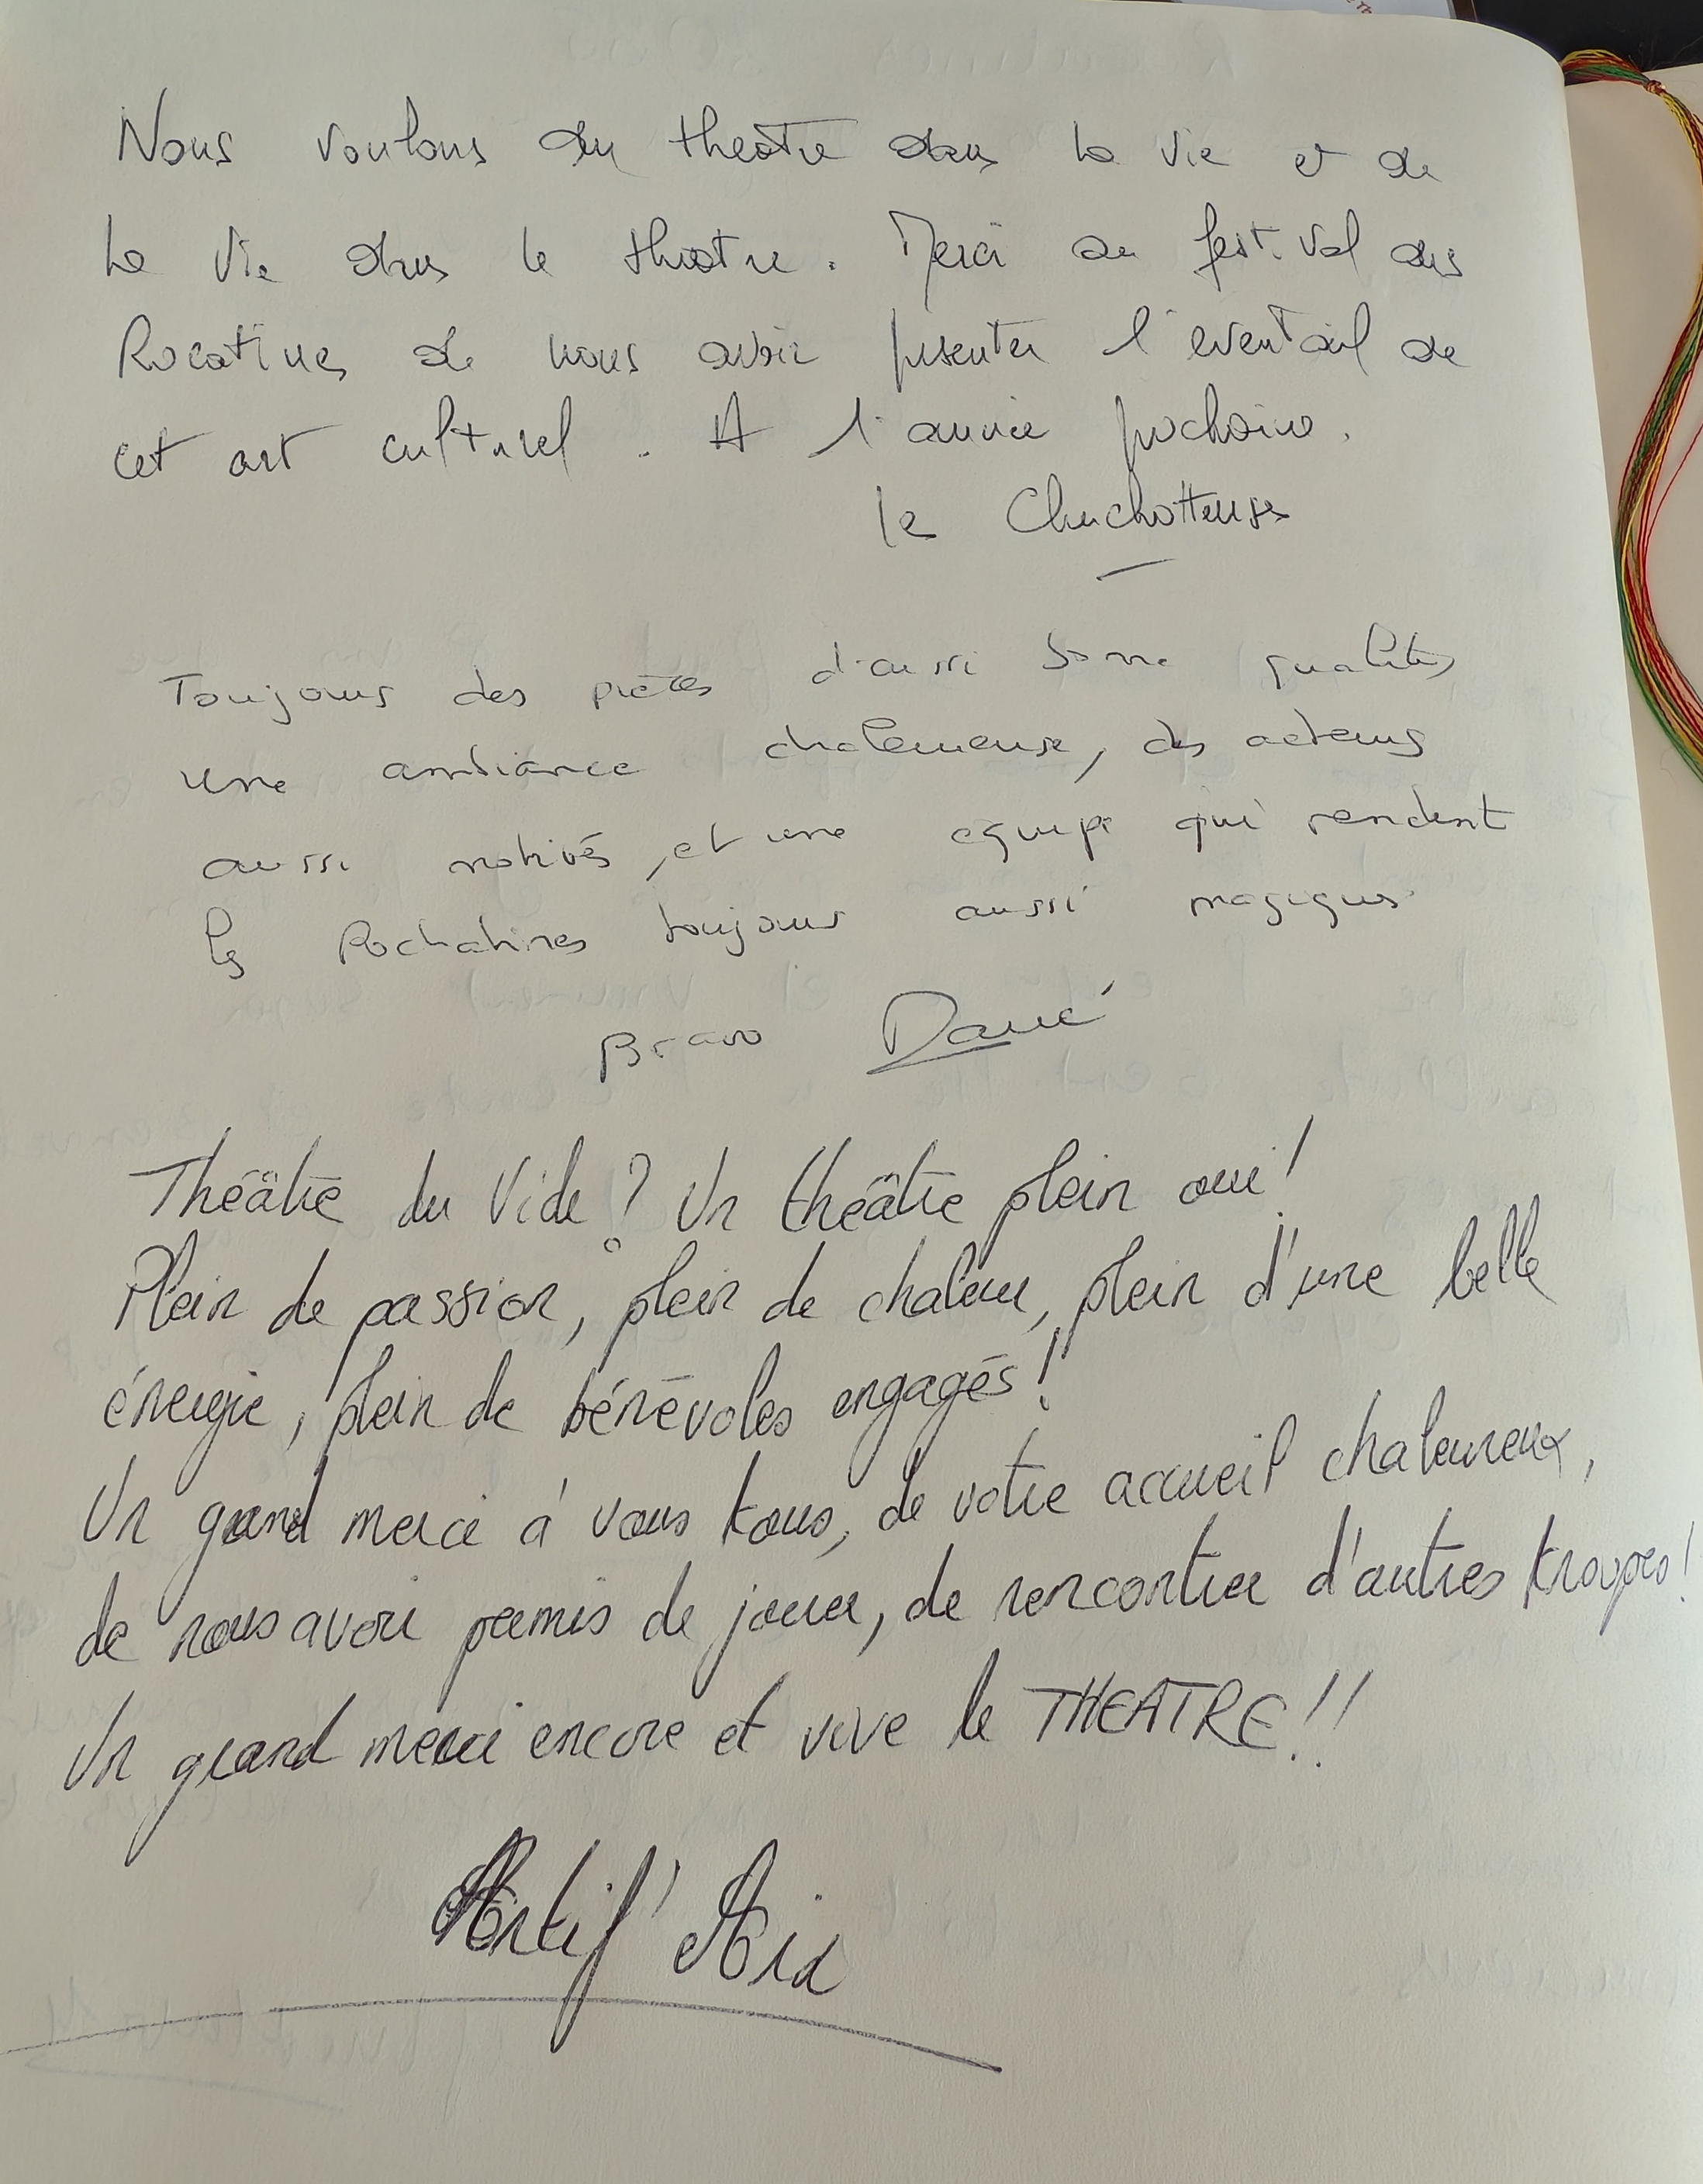 Nous voulons du theâtre dans la vie et de
la vie dans le theatre. Merci au festival des
Rocatines de nous avoir presenter l'eventail de
cet art culturel. A l'année prochaine.
la Chuchotteuse
Toujours des pièces d'aussi bonne qualités
une ambiance chaleureuse, des acteurs
aussi motivés, et une équipe qui rendent
les Rochatines toujours aussi magiques
Bravo
Théâtre du Vide? Un théâtre plein oui!
Plein de passion, plein de chaleur, plein d'une belle
énergie, plein de bénévoles engagés!
Un grand merci à vous tous, de votre accueil chaleureux,
de nous avoir permis de jouer, de rencontrer d'autres troupes!
Un grand merci encore et vive le THEATRE!!
Artif'